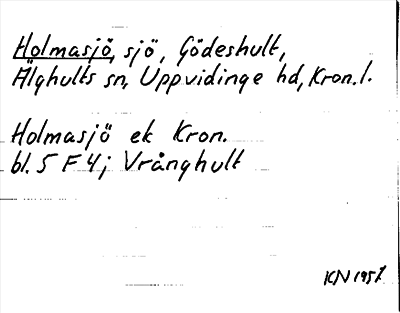 Holmasjö, sjö, Gödeshult,
Älghults sn, Uppvidinge hd, Kron. l.
Holmasjö ek Kron.
bl. 5 F 4j Vrånghult
KN 1957